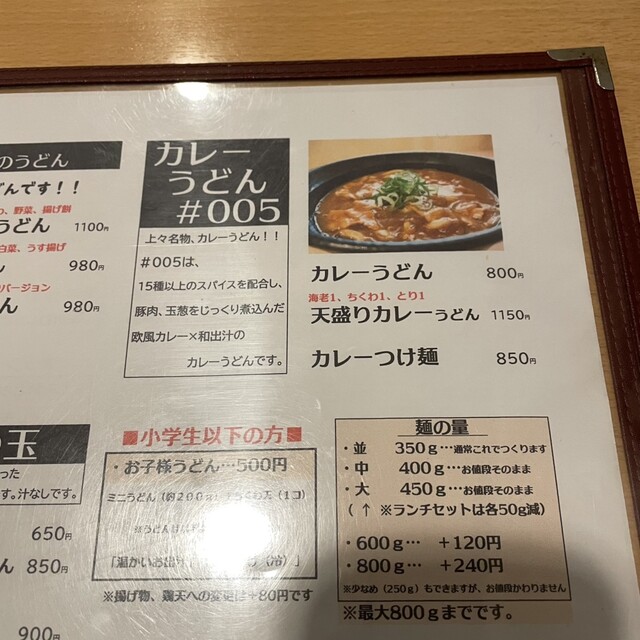 のうどん
んです！！
、野菜、揚げ餅
うどん 1100円
白菜、うす揚げ
980円
バージョン
ん 980円
カレー
うどん
＃005
上々名物、カレーうどん！！
＃005は、
15種以上のスパイスを配合し、
豚肉、玉葱をじっくり煮込んだ
欧風カレー×和出汁の
カレーうどんです。
カレーうどん 800円
海老1、ちくわ1、とり1
天盛りカレーうどん 1150円
カレーつけ麺 850円
玉
った
す。汁なしです。
650円
ん 850円
900円
■小学生以下の方■
・お子様うどん…500円
ミニうどん（約200g）
（1コ）
「温かいお出汁」
（冷）」
※揚げ物、鶏天への変更は+80円です
麺の量
・並 350g…通常これでつくります
・中 400g…お値段そのまま
・大 450g…お値段そのまま
（ ↑ ※ランチセットは各50g減）
・600g… +120円
・800g… +240円
※少なめ（250g）もできますが、お値段かわりません
※最大800gまでです。